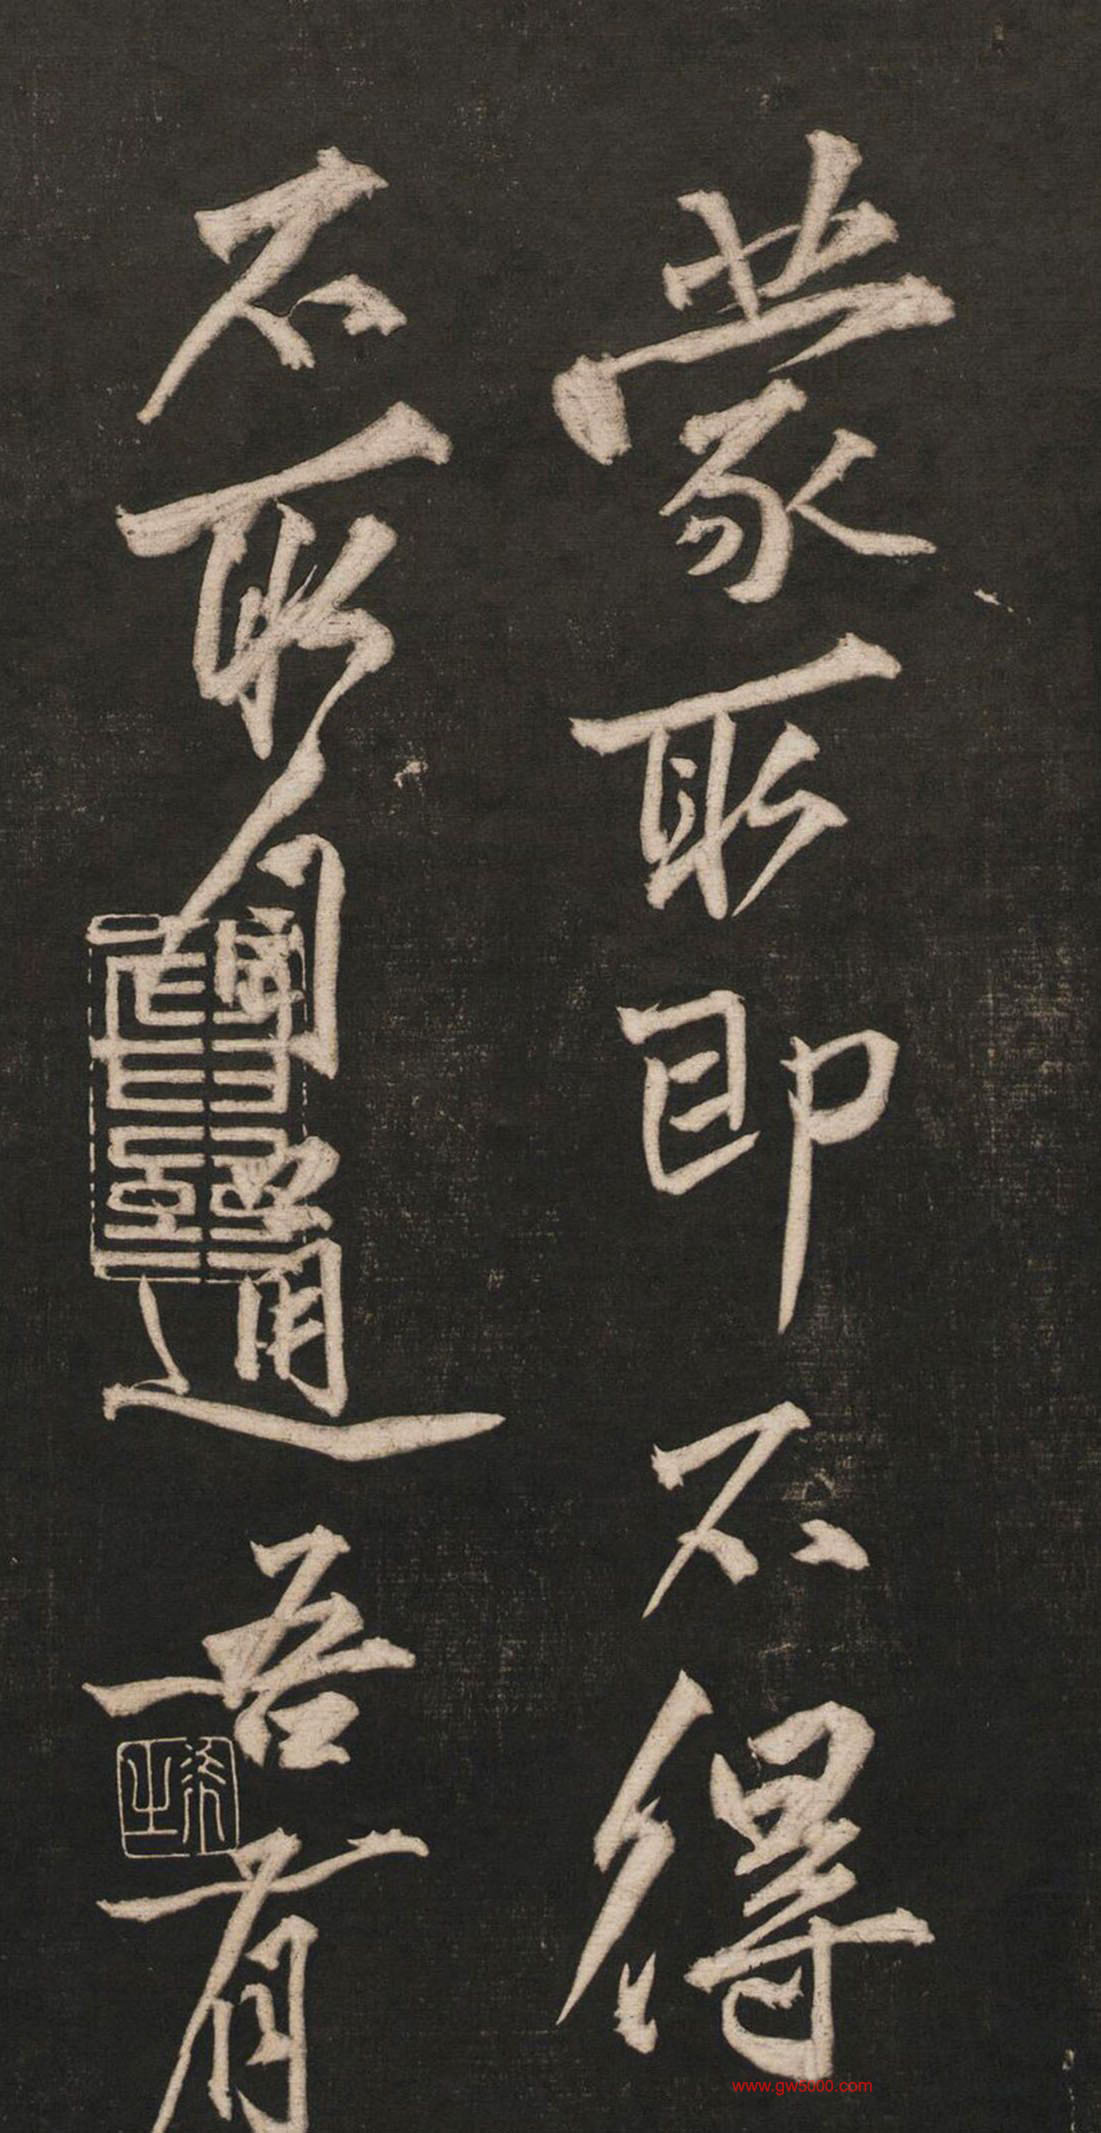 蒙取即不得
不取自通吾有
www.gw5000.com